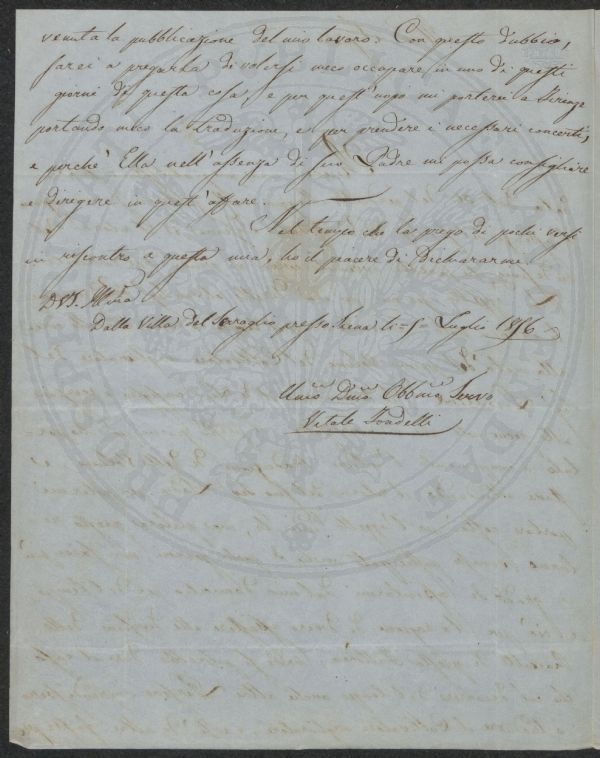 venuta la pubblicazione del mio lavoro. Con questo dubbio,
sarei a pregarla di volersi meco occupare in uno di questi
giorni di questa cosa, e per quest'uopo mi porterei a Firenze
portando meco la traduzione, e per prendere i necessari concerti,
e perchè Ella nell'assenza di suo Padre mi possa consigliare
e dirigere in quest'affare.
Nel tempo che la prego di pochi versi
in riscontro a questa mia, ho il piacere di dichiararmi
Di V.S. Illma
Dalla Villa del Serraglio presso Siena li = 5 = Luglio 1856
Umo Dmo Obbmo Servo
Vitale